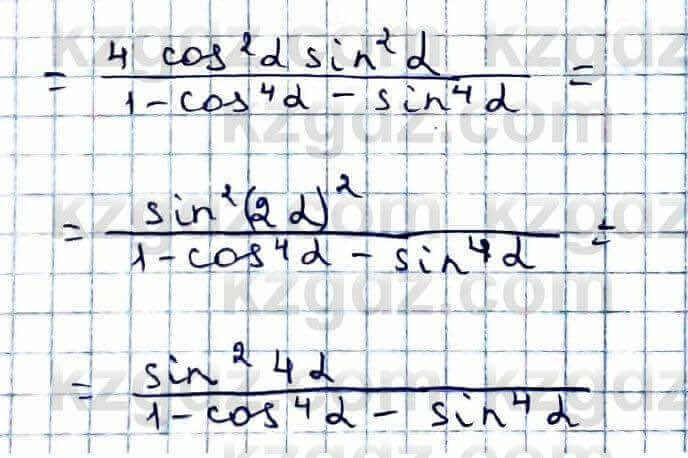 = 4 cos²α sin²α / 1 - cos⁴α - sin⁴α =
= sin²(2α)² / 1 - cos⁴α - sin⁴α =
= sin² 4α / 1 - cos⁴α - sin⁴α
kzgdz.com